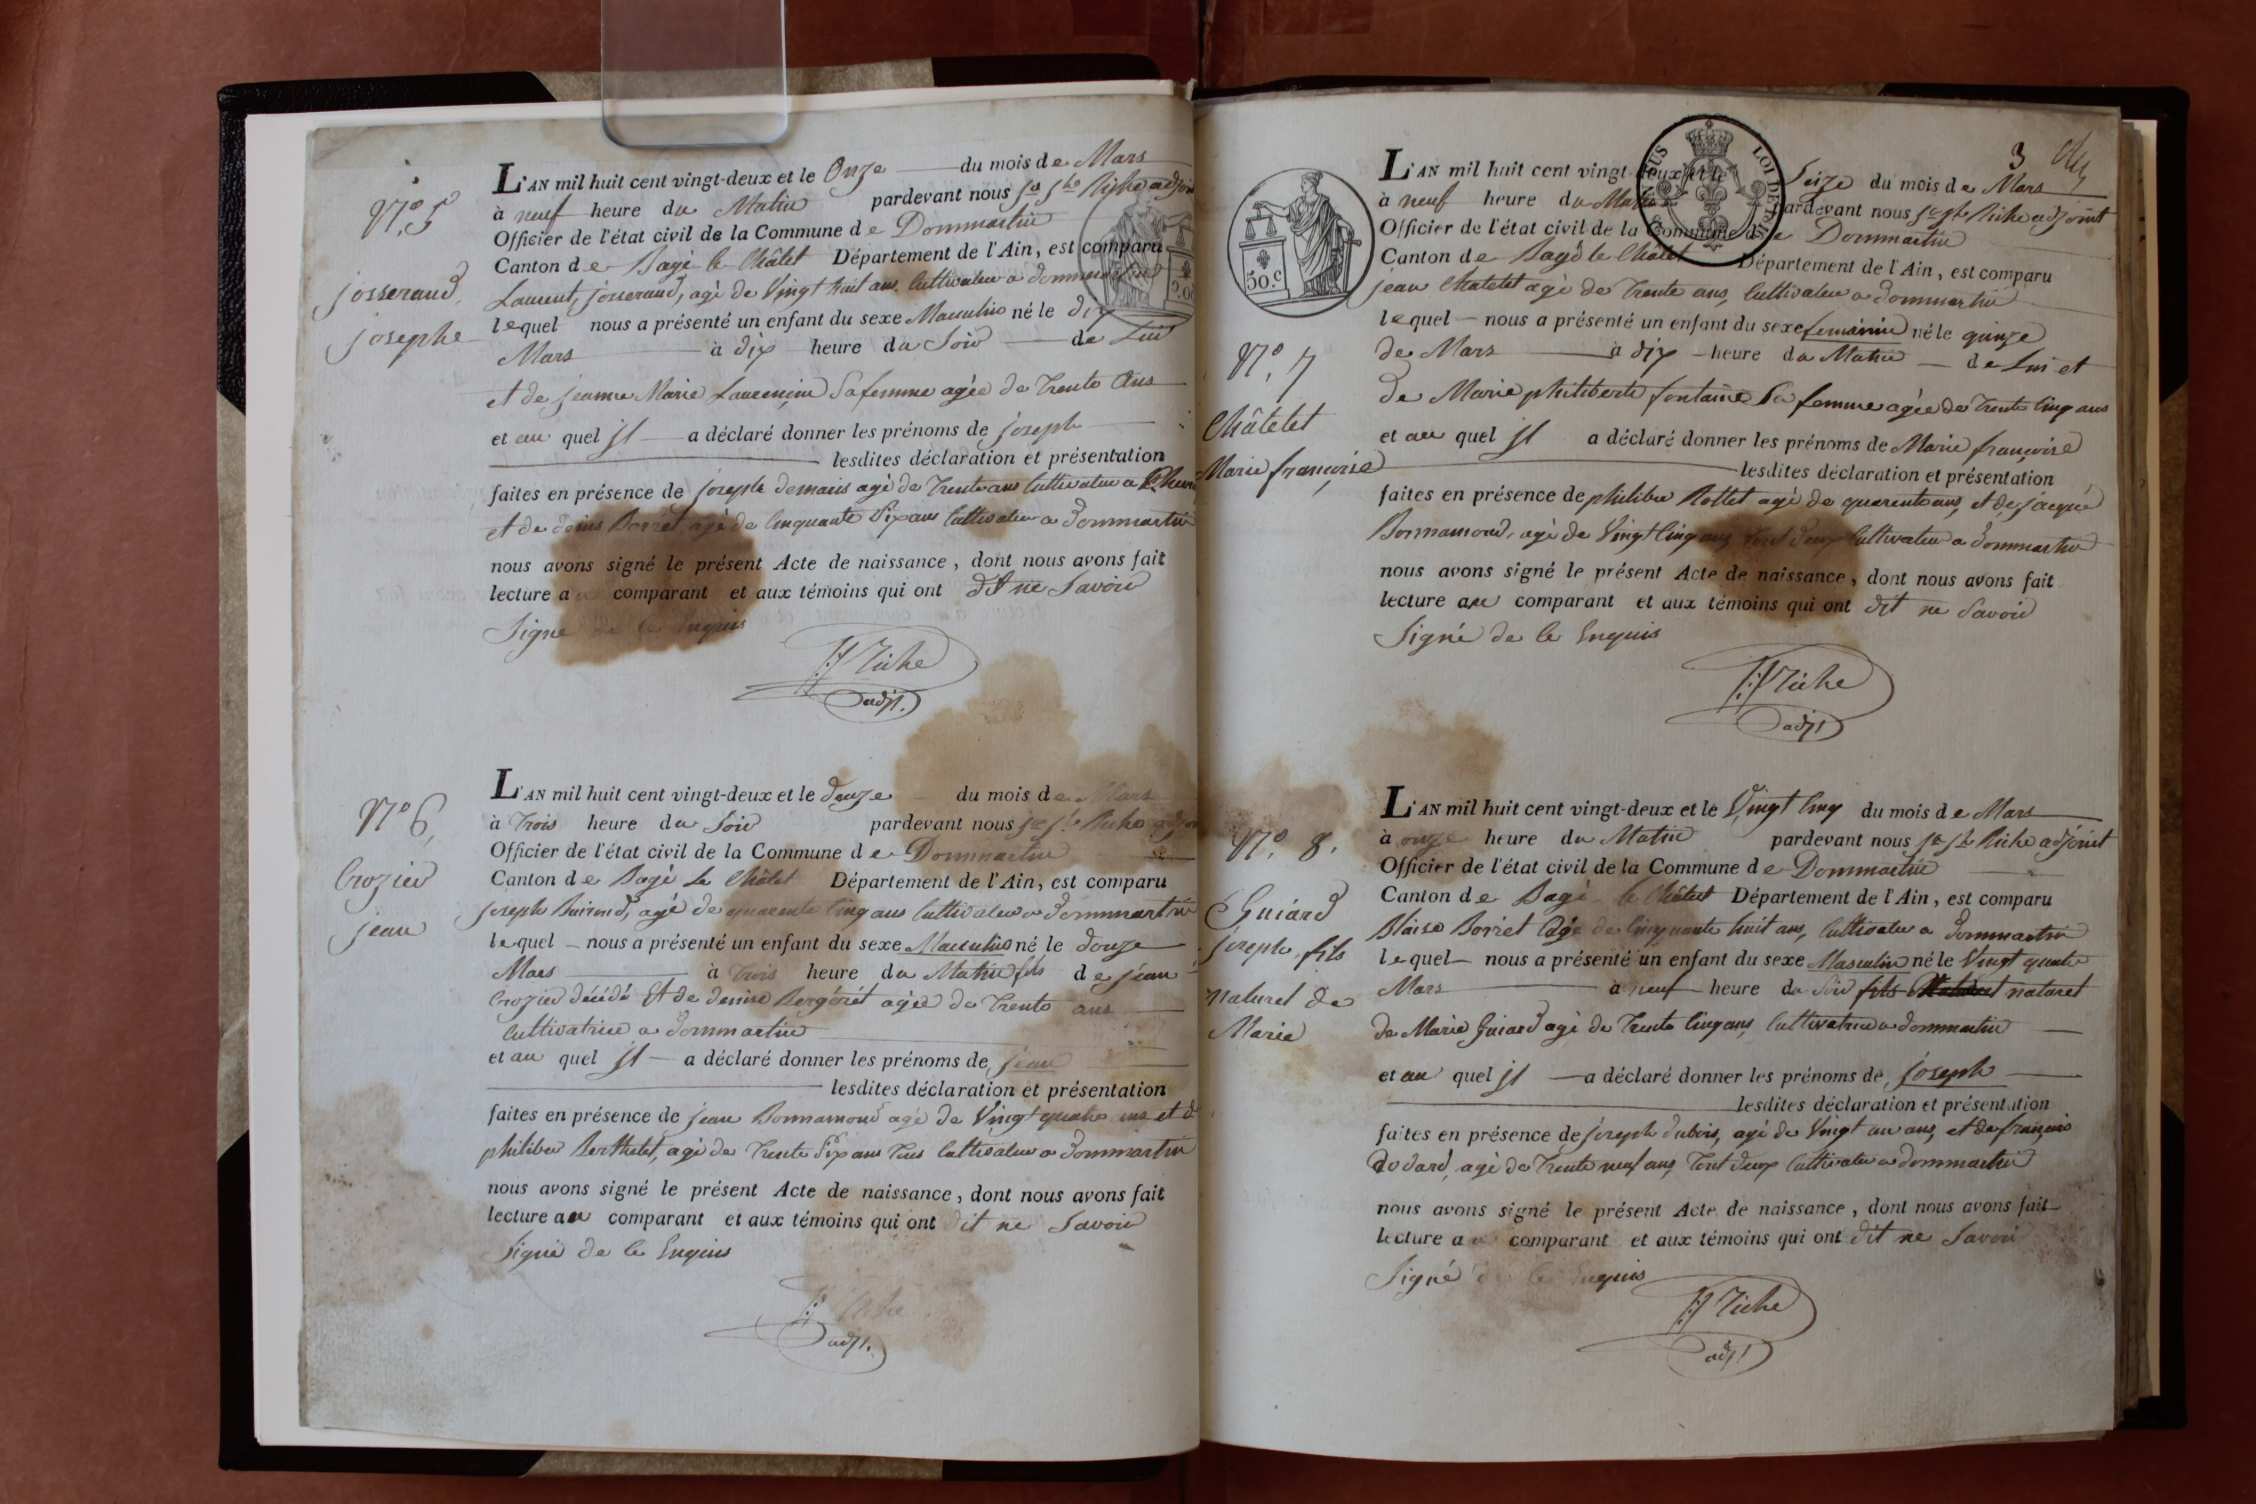 N.o 5
josseraud,
josephe
L'AN mil huit cent vingt-deux et le Onze du mois de Mars
à neuf heure du Matin pardevant nous jh Riche adjoint
Officier de l'état civil de la Commune de Dommartin
Canton de Bagé le Châtel Département de l'Ain, est comparu
Laurent, josseraud, agé de Vingt huit ans, Cultivateur a dommartin
lequel nous a présenté un enfant du sexe Masculin né le dix
Mars à dix heure du Soir de Lui
et de jeanne Marie Laurençin Sa femme agée de Trente Ans
et au quel jl a déclaré donner les prénoms de joseph
lesdites déclaration et présentation
faites en présence de joseph demais agé de Trente ans Cultivateur a
et de denis Borret agé de Cinquante Six ans Cultivateur a Dommartin
nous avons signé le présent Acte de naissance, dont nous avons fait
lecture au comparant et aux témoins qui ont dit ne Savoir
Signé de ce Enquis
Riche
adjt.
N.o 6,
Crozier
jean
L'AN mil huit cent vingt-deux et le douze du mois de Mars
à Trois heure du Soir pardevant nous jh Riche adjoint
Officier de l'état civil de la Commune de Dommartin
Canton de Bagé Le Châtel Département de l'Ain, est comparu
joseph agé de quarente Cinq ans Cultivateur a dommartin
lequel nous a présenté un enfant du sexe Masculin né le douze
Mars à Trois heure du Matin fils de jean
Crozier décédé Et de denise Bergéret agée de Trente ans
Cultivatrice a dommartin
et au quel jl a déclaré donner les prénoms de jean
lesdites déclaration et présentation
faites en présence de jean Bonnamour agé de Vingt quatre ans et de
philiber Berthelet, agé de Trente Six ans Tous Cultivateur a dommartin
nous avons signé le présent Acte de naissance, dont nous avons fait
lecture au comparant et aux témoins qui ont dit ne Savoir
Signé de ce Enquis
Riche
adjt.
3
50.c
N.o 7
Châtelet
Marie françoise
L'AN mil huit cent vingt-deux et le Seize du mois de Mars
à neuf heure du Matin pardevant nous jh Riche adjoint
Officier de l'état civil de la Commune de Dommartin
Canton de Bagé le Châtel Département de l'Ain, est comparu
jean Chatelet agé de Trente ans, Cultivateur a dommartin
lequel nous a présenté un enfant du sexe feminin né le quinze
de Mars à dix heure du Matin de Lui et
de Marie philiberte fontaine Sa femme agée de Trente Cinq ans
et au quel jl a déclaré donner les prénoms de Marie françoise
lesdites déclaration et présentation
faites en présence de philiber Rollet agé de quarente ans, et de jacque
Bonnamour, agé de Vingt Cinq ans, Tout deux Cultivateur a dommartin
nous avons signé le présent Acte de naissance, dont nous avons fait
lecture au comparant et aux témoins qui ont dit ne Savoir
Signé de ce Enquis
Riche
adjt
N.o 8.
Guiard
joseph, fils
naturel de
Marie
L'AN mil huit cent vingt-deux et le Vingt Cinq du mois de Mars
à onze heure du Matin pardevant nous jh Riche adjoint
Officier de l'état civil de la Commune de Dommartin
Canton de Bagé le Châtel Département de l'Ain, est comparu
Blaise Borret agé de Cinquante huit ans, Cultivateur a dommartin
lequel nous a présenté un enfant du sexe Masculin né le Vingt quatre
Mars à neuf heure du Soir fils naturel
de Marie Guiard agé de Trente Cinq ans, Cultivatrice a dommartin
et au quel jl a déclaré donner les prénoms de joseph
lesdites déclaration et présentation
faites en présence de joseph dubois, agé de Vingt un ans, et de françois
dodard, agé de Trente neuf ans, Tout deux Cultivateur a dommartin
nous avons signé le présent Acte de naissance, dont nous avons fait
lecture au comparant et aux témoins qui ont dit ne Savoir
Signé de ce Enquis
Riche
adjt